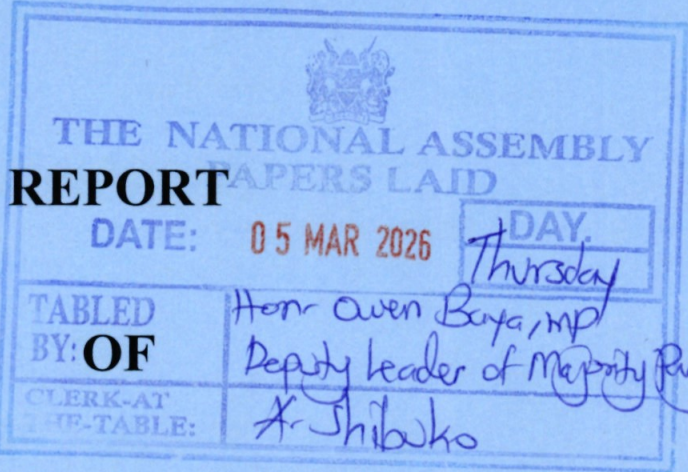 THE NATIONAL ASSEMBLY
REPORT PAPERS LAID
DATE: 05 MAR 2026 DAY.
Thursday
TABLED BY: Hon. Owen Baya, MP
OF Deputy Leader of Majority
CLERK-AT THE-TABLE: A. Shibuko